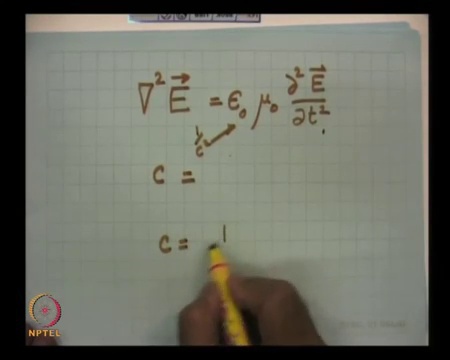 ∇² E⃗ = ϵ₀ μ₀ ∂² E⃗ / ∂t²
1/c²
c =
c = 1
NPTEL